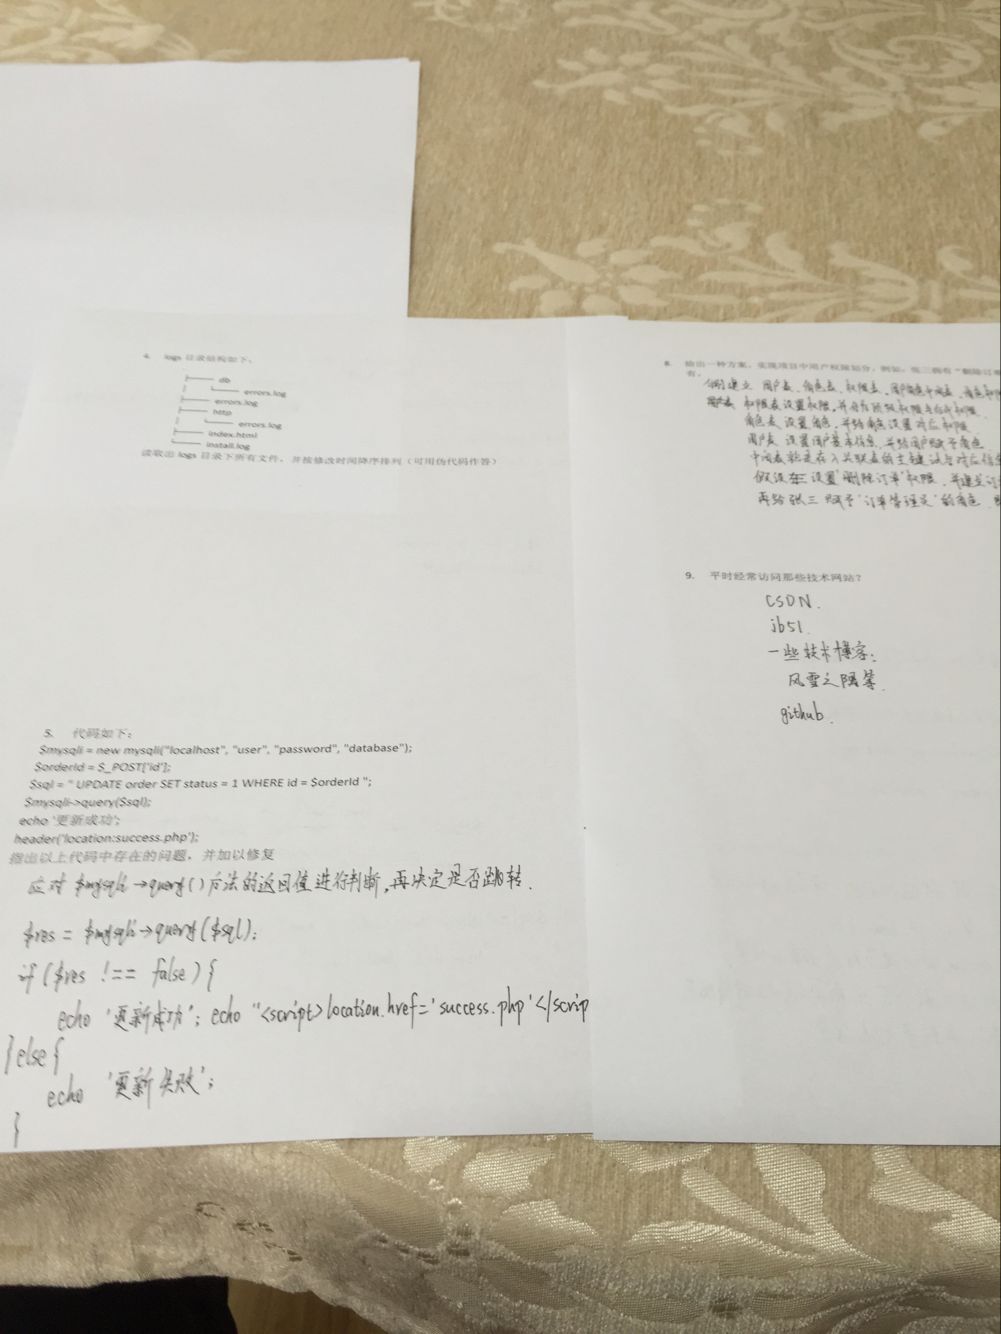 4. logs 目录结构如下：
├── db
│ └── errors.log
├── errors.log
├── http
│ └── errors.log
├── index.html
└── install.log
读取出 logs 目录下所有文件，并按修改时间降序排列（可用伪代码作答）
5. 代码如下：
$mysqli = new mysqli("localhost", "user", "password", "database");
$orderId = $_POST['id'];
$sql = " UPDATE order SET status = 1 WHERE id = $orderId ";
$mysqli->query($sql);
echo '更新成功';
header('location:success.php');
指出以上代码中存在的问题，并加以修复
应对 $mysqli->query()方法的返回值进行判断,再决定是否跳转.
$res = $mysqli->query($sql);
if ($res !== false) {
echo '更新成功'; echo "<script>location.href='success.php'</scrip
}else{
echo '更新失败';
}
8. 给出一种方案，实现项目中用户权限划分，例如，张三拥有"删除订单
有。
建立 用户表、角色表、权限表、用户角色中间表、角色和
权限表 设置权限,并
角色表 设置角色,并给角色设置对应权限
用户表 设置用户基本信息,并给用户赋予角色
中间表就是存入关联表的主键
假设在 设置'删除订单'权限,并建立订
再给张三赋予'订单管理员'的角色.
9. 平时经常访问那些技术网站？
CSDN.
jb51.
一些技术博客：
风雪之隅等.
github.